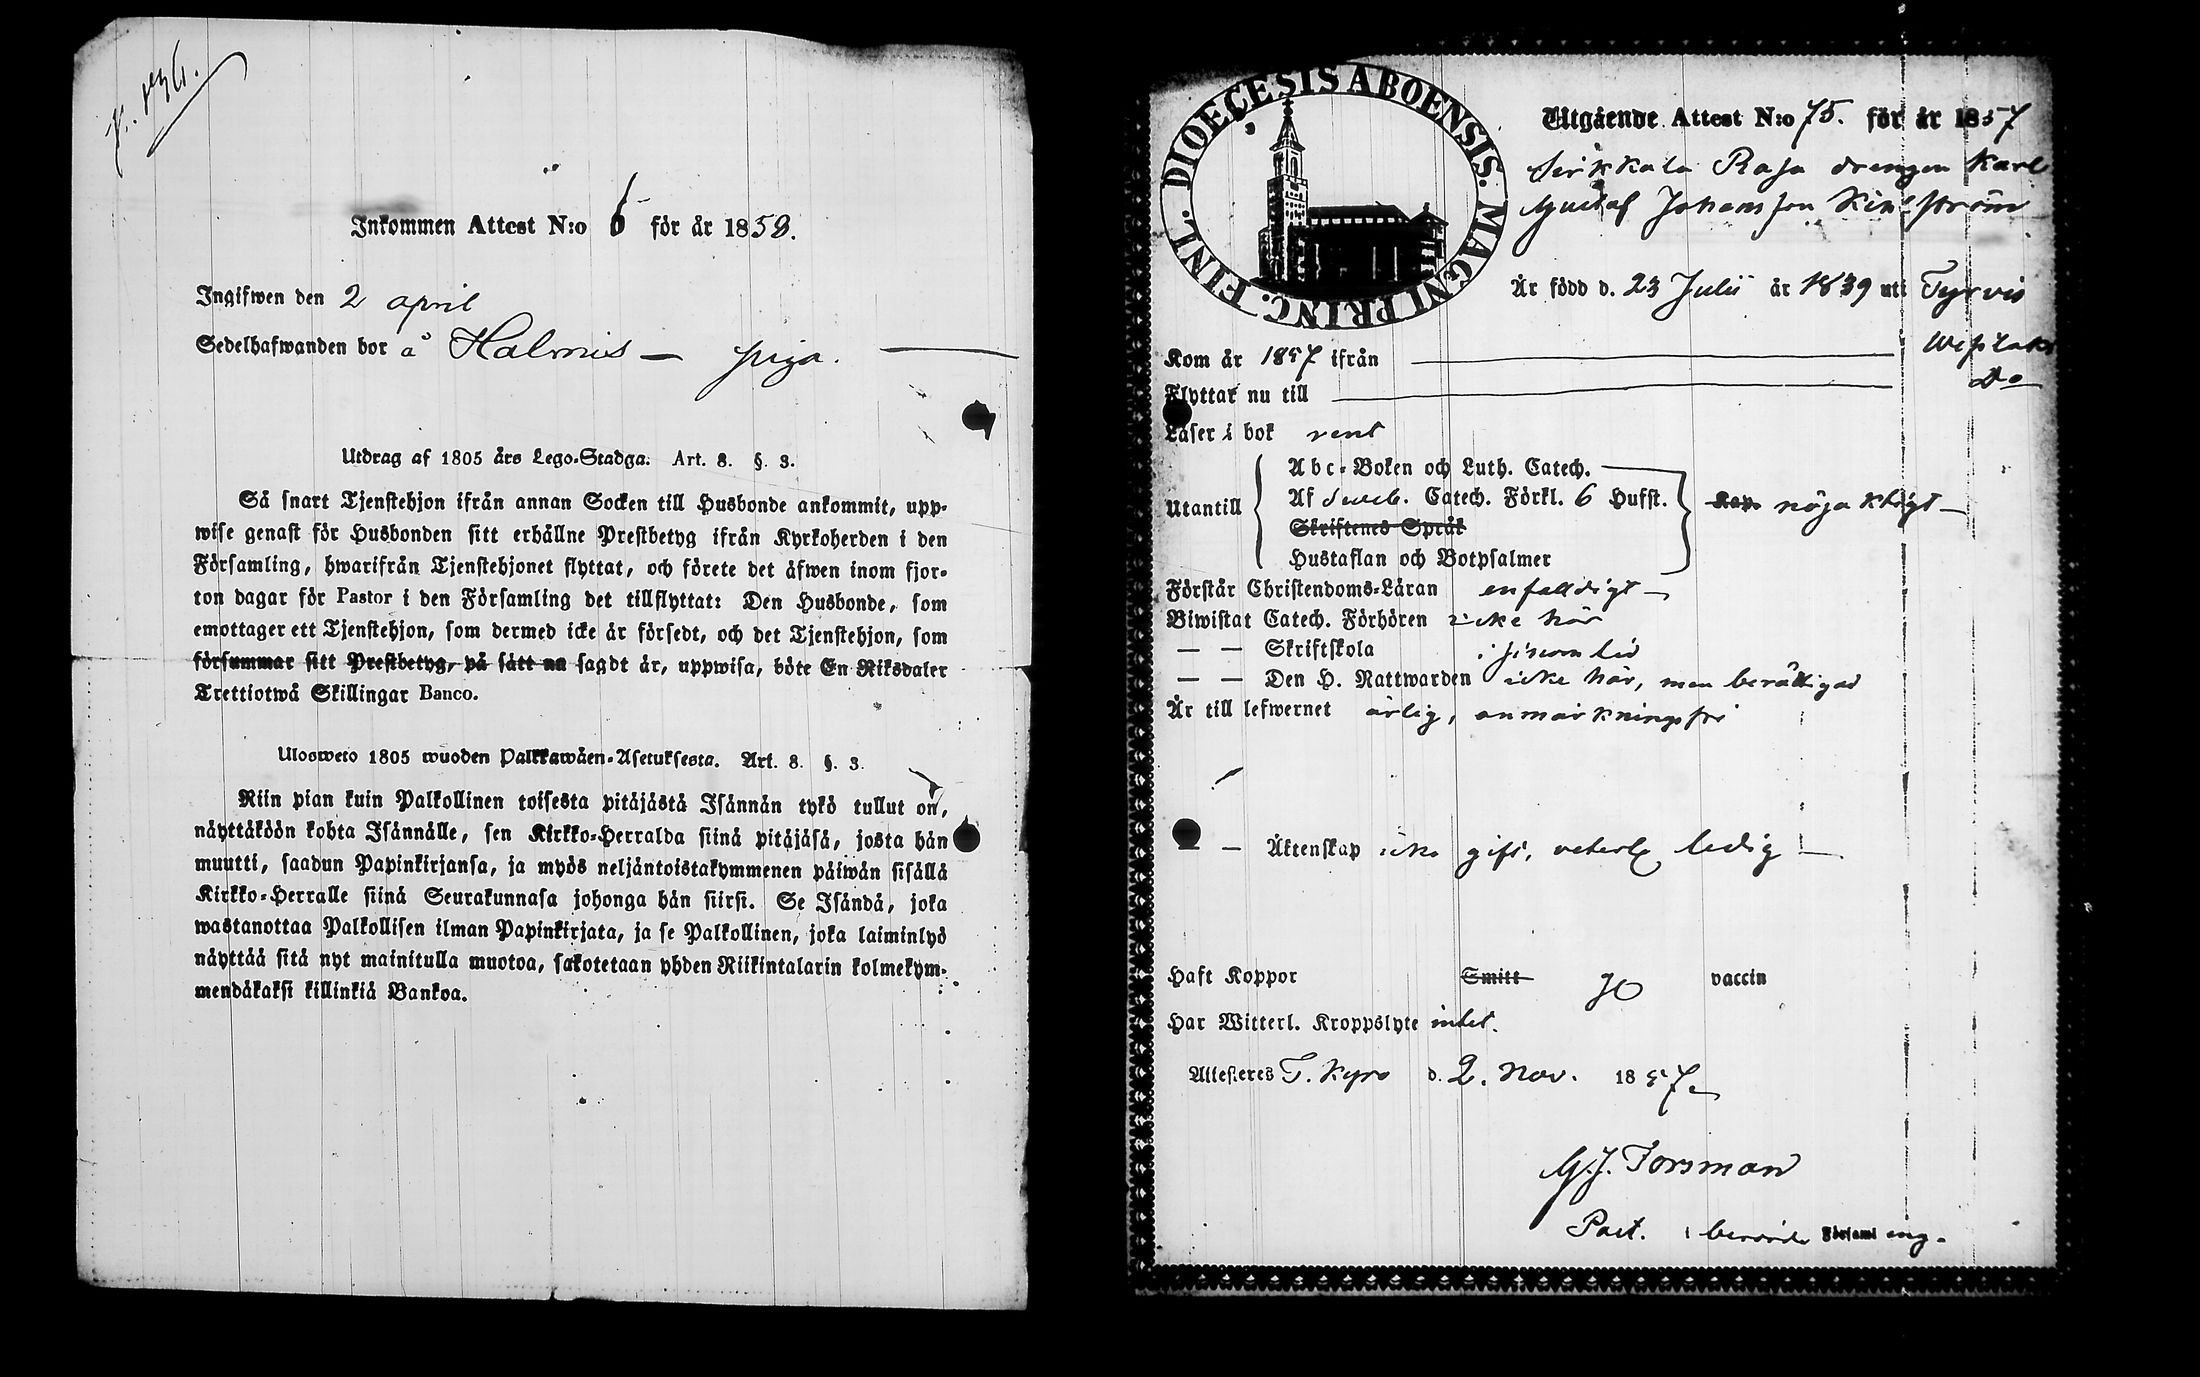 Inkommen Attest N:o 6 för år 1858.
Ingifwen den 2 april
Sedelhafwanden bor å Halmis — piga.
Utdrag af 1805 års Lego-Stadga. Art. 8. §. 3.
Så snart Tjenstehjon ifrån annan Socken till Husbonde ankommit, upp-
wise genast för Husbonden sitt erhållne Prestbetyg ifrån Kyrkoherden i den
Församling, hwarifrån Tjenstehjonet flyttat, och förete det äfwen inom fjor-
ton dagar för Pastor i den Församling det tillflyttat: Den Husbonde, som
emottager ett Tjenstehjon, som dermed icke är försedt, och det Tjenstehjon, som
försummar sitt Prestbetyg, på sätt nu sagdt är, uppwisa, böte En Riksdaler
Trettiotwå Skillingar Banco.
Ulosweto 1805 wuoden Palkkawäen-Asetuksesta. Art. 8. §. 3.
Niin pian kuin Palkollinen toisesta pitäjästä Isännän tykö tullut on,
näyttäköön kohta Isännälle, sen Kirkko-Herralda siinä pitäjäsä, josta hän
muutti, saadun Papinkirjansa, ja myös neljäntoistakymmenen päiwän sisällä
Kirkko-Herralle siinä Seurakunnasa johonga hän siirsi. Se Isändä, joka
wastanottaa Palkollisen ilman Papinkirjata, ja se Palkollinen, joka laiminlyö
näyttää sitä nyt mainitulla muotoa, sakotetaan yhden Riikintalarin kolmekym-
mendäkaksi killinkiä Bankoa.
DIOECESIS ABOENSIS. MAGNI PRINC. FINL.
Utgående Attest N:o 75. för år 1857
Sirkkala Raja drengen Karl
Gustaf Johansson
Är född d. 23 Julii år 1839 uti Tyrvis
Kom år 1857 ifrån
Do
Flyttar nu till
Läser i bok rent
Utantill
Abc-Boken och Luth. Catech.
Af Sweb. Catech. Förkl. 6 Hufst.
Skriftenes Språk
Hustaflan och Botpsalmer
Kap. nöjaktigt —
Förstår Christendoms-Läran enfaldigt —
Biwistat Catech. Förhören icke här
— — Skriftskola
— — Den H. Nattwarden icke här, men berättigad
Är till lefwernet ärlig, anmärkningsfri
— — Äktenskap icke gift, veterl. ledig —
Haft Koppor Smitt jo vaccin
Har Witterl. Kroppslyte intet.
Attesteres T. Kyro d. 2. Nov. 1857
G. J. Forsman
Past. i berörde Församling.